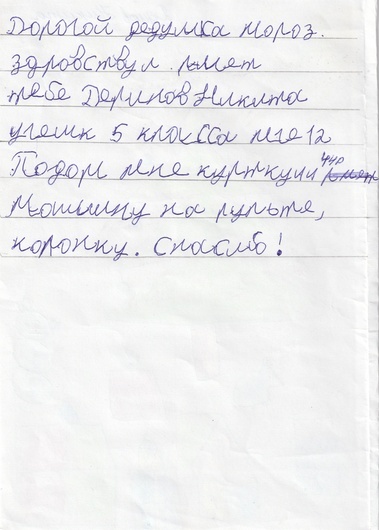 Дорогой дедушка мороз.
здравствул. пмет
тебе Деринов Никита
учеик 5 класса мне 12
Подор мне курткуии
Мошину на пульте,
колонку. спасибо!